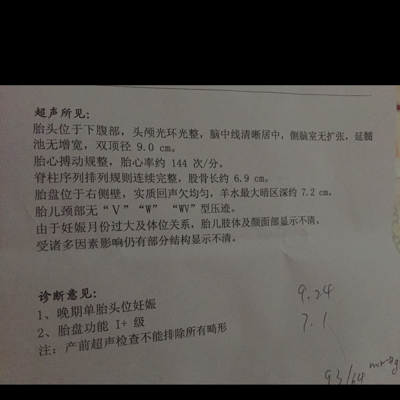 超声所见:
胎头位于下腹部，头颅光环光整，脑中线清晰居中，侧脑室无扩张，延髓
池无增宽，双顶径 9.0 cm。
胎心搏动规整，胎心率约 144 次/分。
脊柱序列排列规则连续完整，股骨长约 6.9 cm。
胎盘位于右侧壁，实质回声欠均匀，羊水最大暗区深约 7.2 cm。
胎儿颈部无“V”“W” “WV”型压迹。
由于妊娠月份过大及体位关系，胎儿肢体及颜面部显示不清。
受诸多因素影响仍有部分结构显示不清。
诊断意见:
1、晚期单胎头位妊娠
2、胎盘功能 I+ 级
注：产前超声检查不能排除所有畸形
9.24
7.1
93/64 mmHg